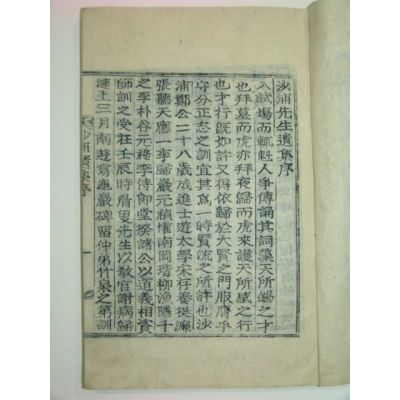 沙浦先生遺集序
入試場而輒魁人爭傳誦其詞藻天所錫之才
也拜墓而虎亦拜夜歸而虎來護天所感之行
也才行旣如許又得依歸於大賢之門服膺乎
守分正志之訓宜其爲一時賢流之所許也沙
浦鄭公二十八歲成進士遊太學宋存養挺濂
張聽天應一李歸巖元禎權南岡瑎柳漁隱千
之李朴谷元祿李侍御堂揆諸公以道義相資
師訓之受在壬辰時眉叟先生以敎官謝病歸
漣上三月南遊寫龜巖碑留仲弟竹泉之第訓
沙浦遺集序
一